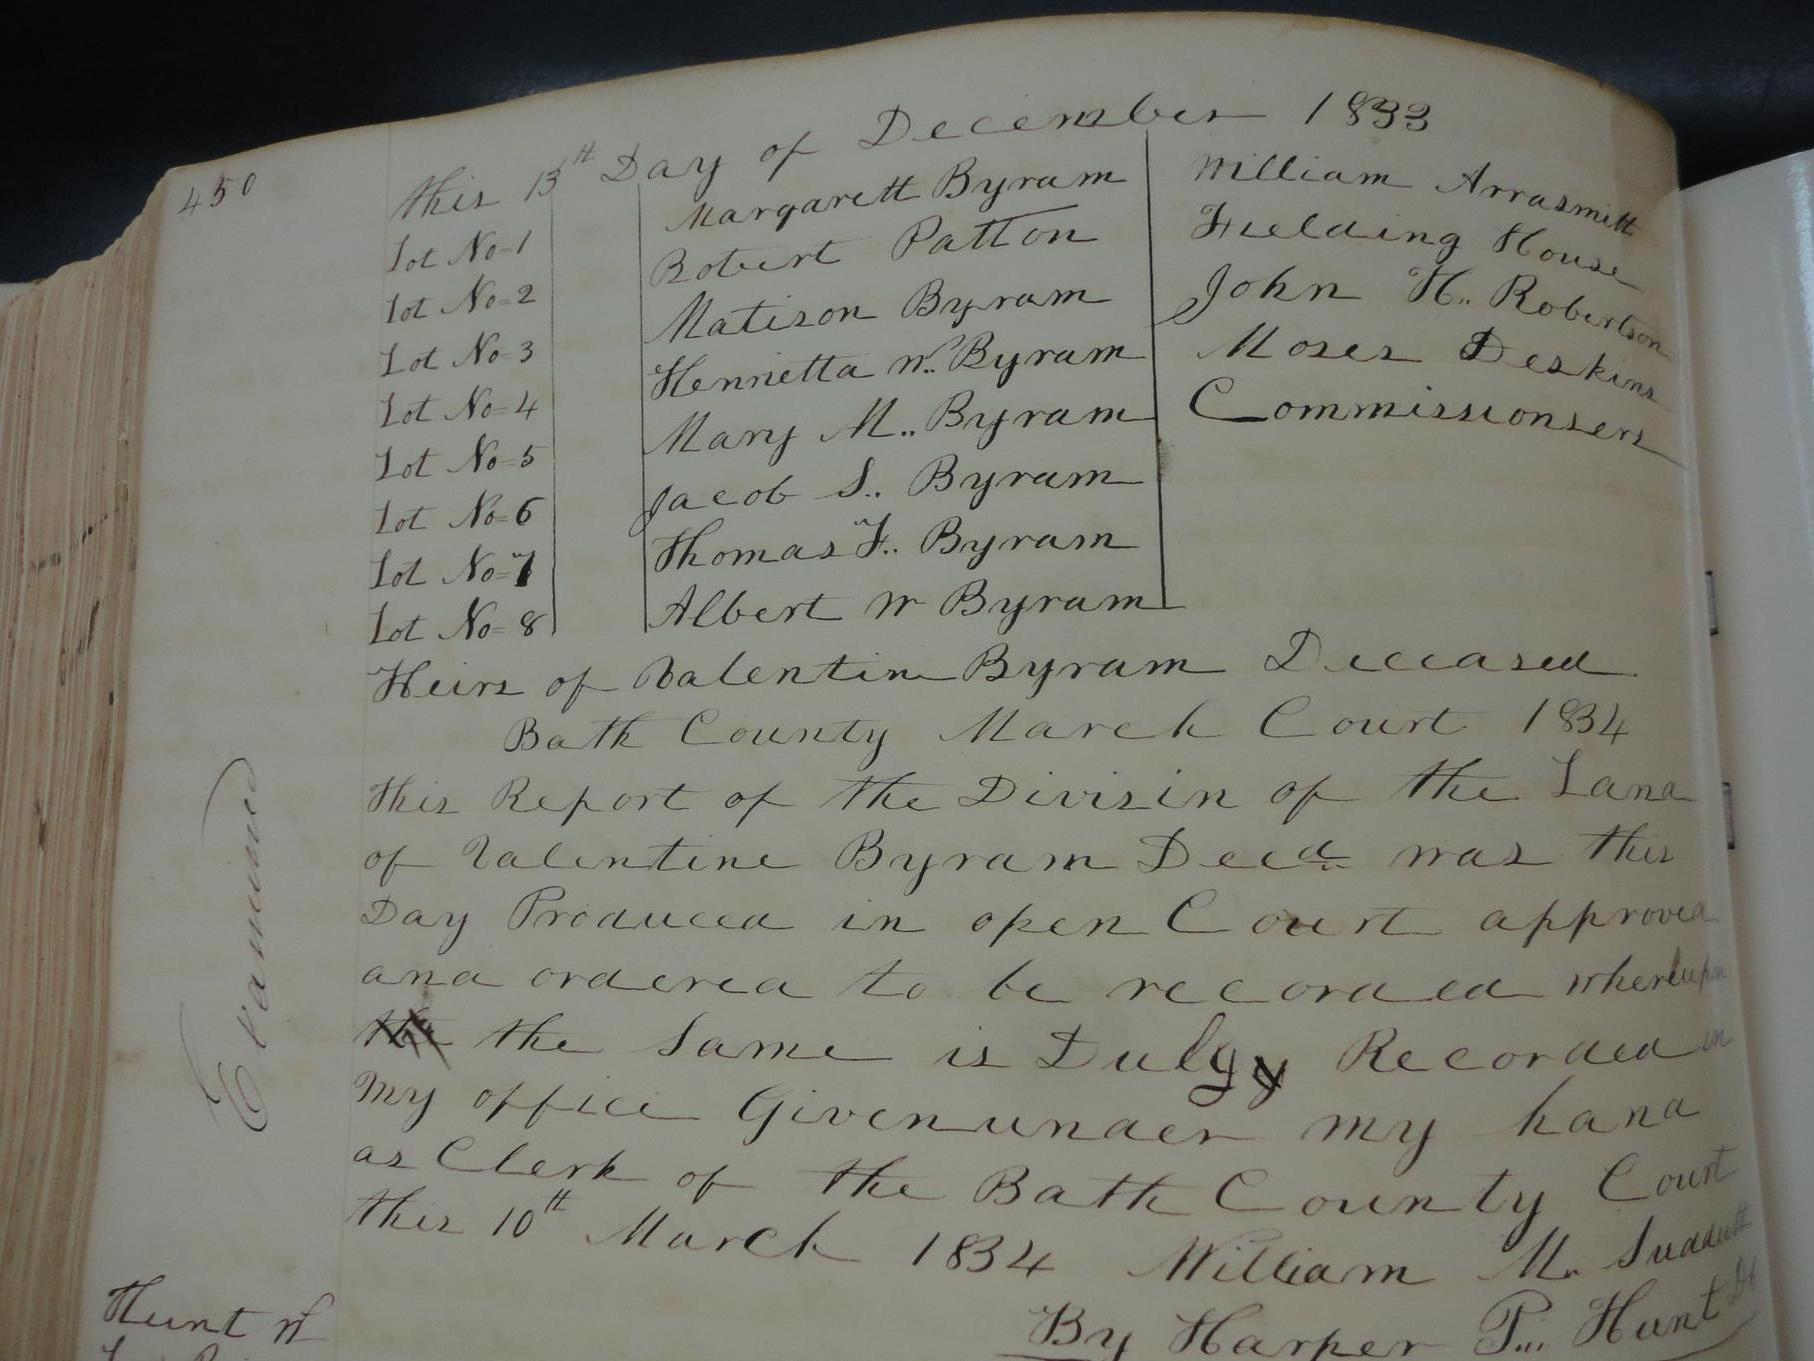 450
this 13th Day of December 1833
Lot No 1 Margarett Byram
Lot No = 2 Robert Patton
Lot No = 3 Matison Byram
Lot No = 4 Henrietta W.. Byram
Lot No = 5 Mary M.. Byram
Lot No = 6 Jacob S.. Byram
Lot No = 7 Thomas F.. Byram
Lot No = 8 Albert W Byram
William Arrasmitt
Fielding House
John H.. Robertson
Moses Deskins
Commissionsers
Heirs of Valentin Byram Deceased
Bath County March Court 1834
this Report of the Divisin of the Land
of Valentine Byram Decd was this
Day Produced in open Court approved
and ordered to be recorded whereupon
the the Same is Duly Recorded in
my office Given under my hand
as Clerk of the Bath County Court
this 10th March 1834 William M. Suddutt
By Harper P... Hunt
Examined
Hunt